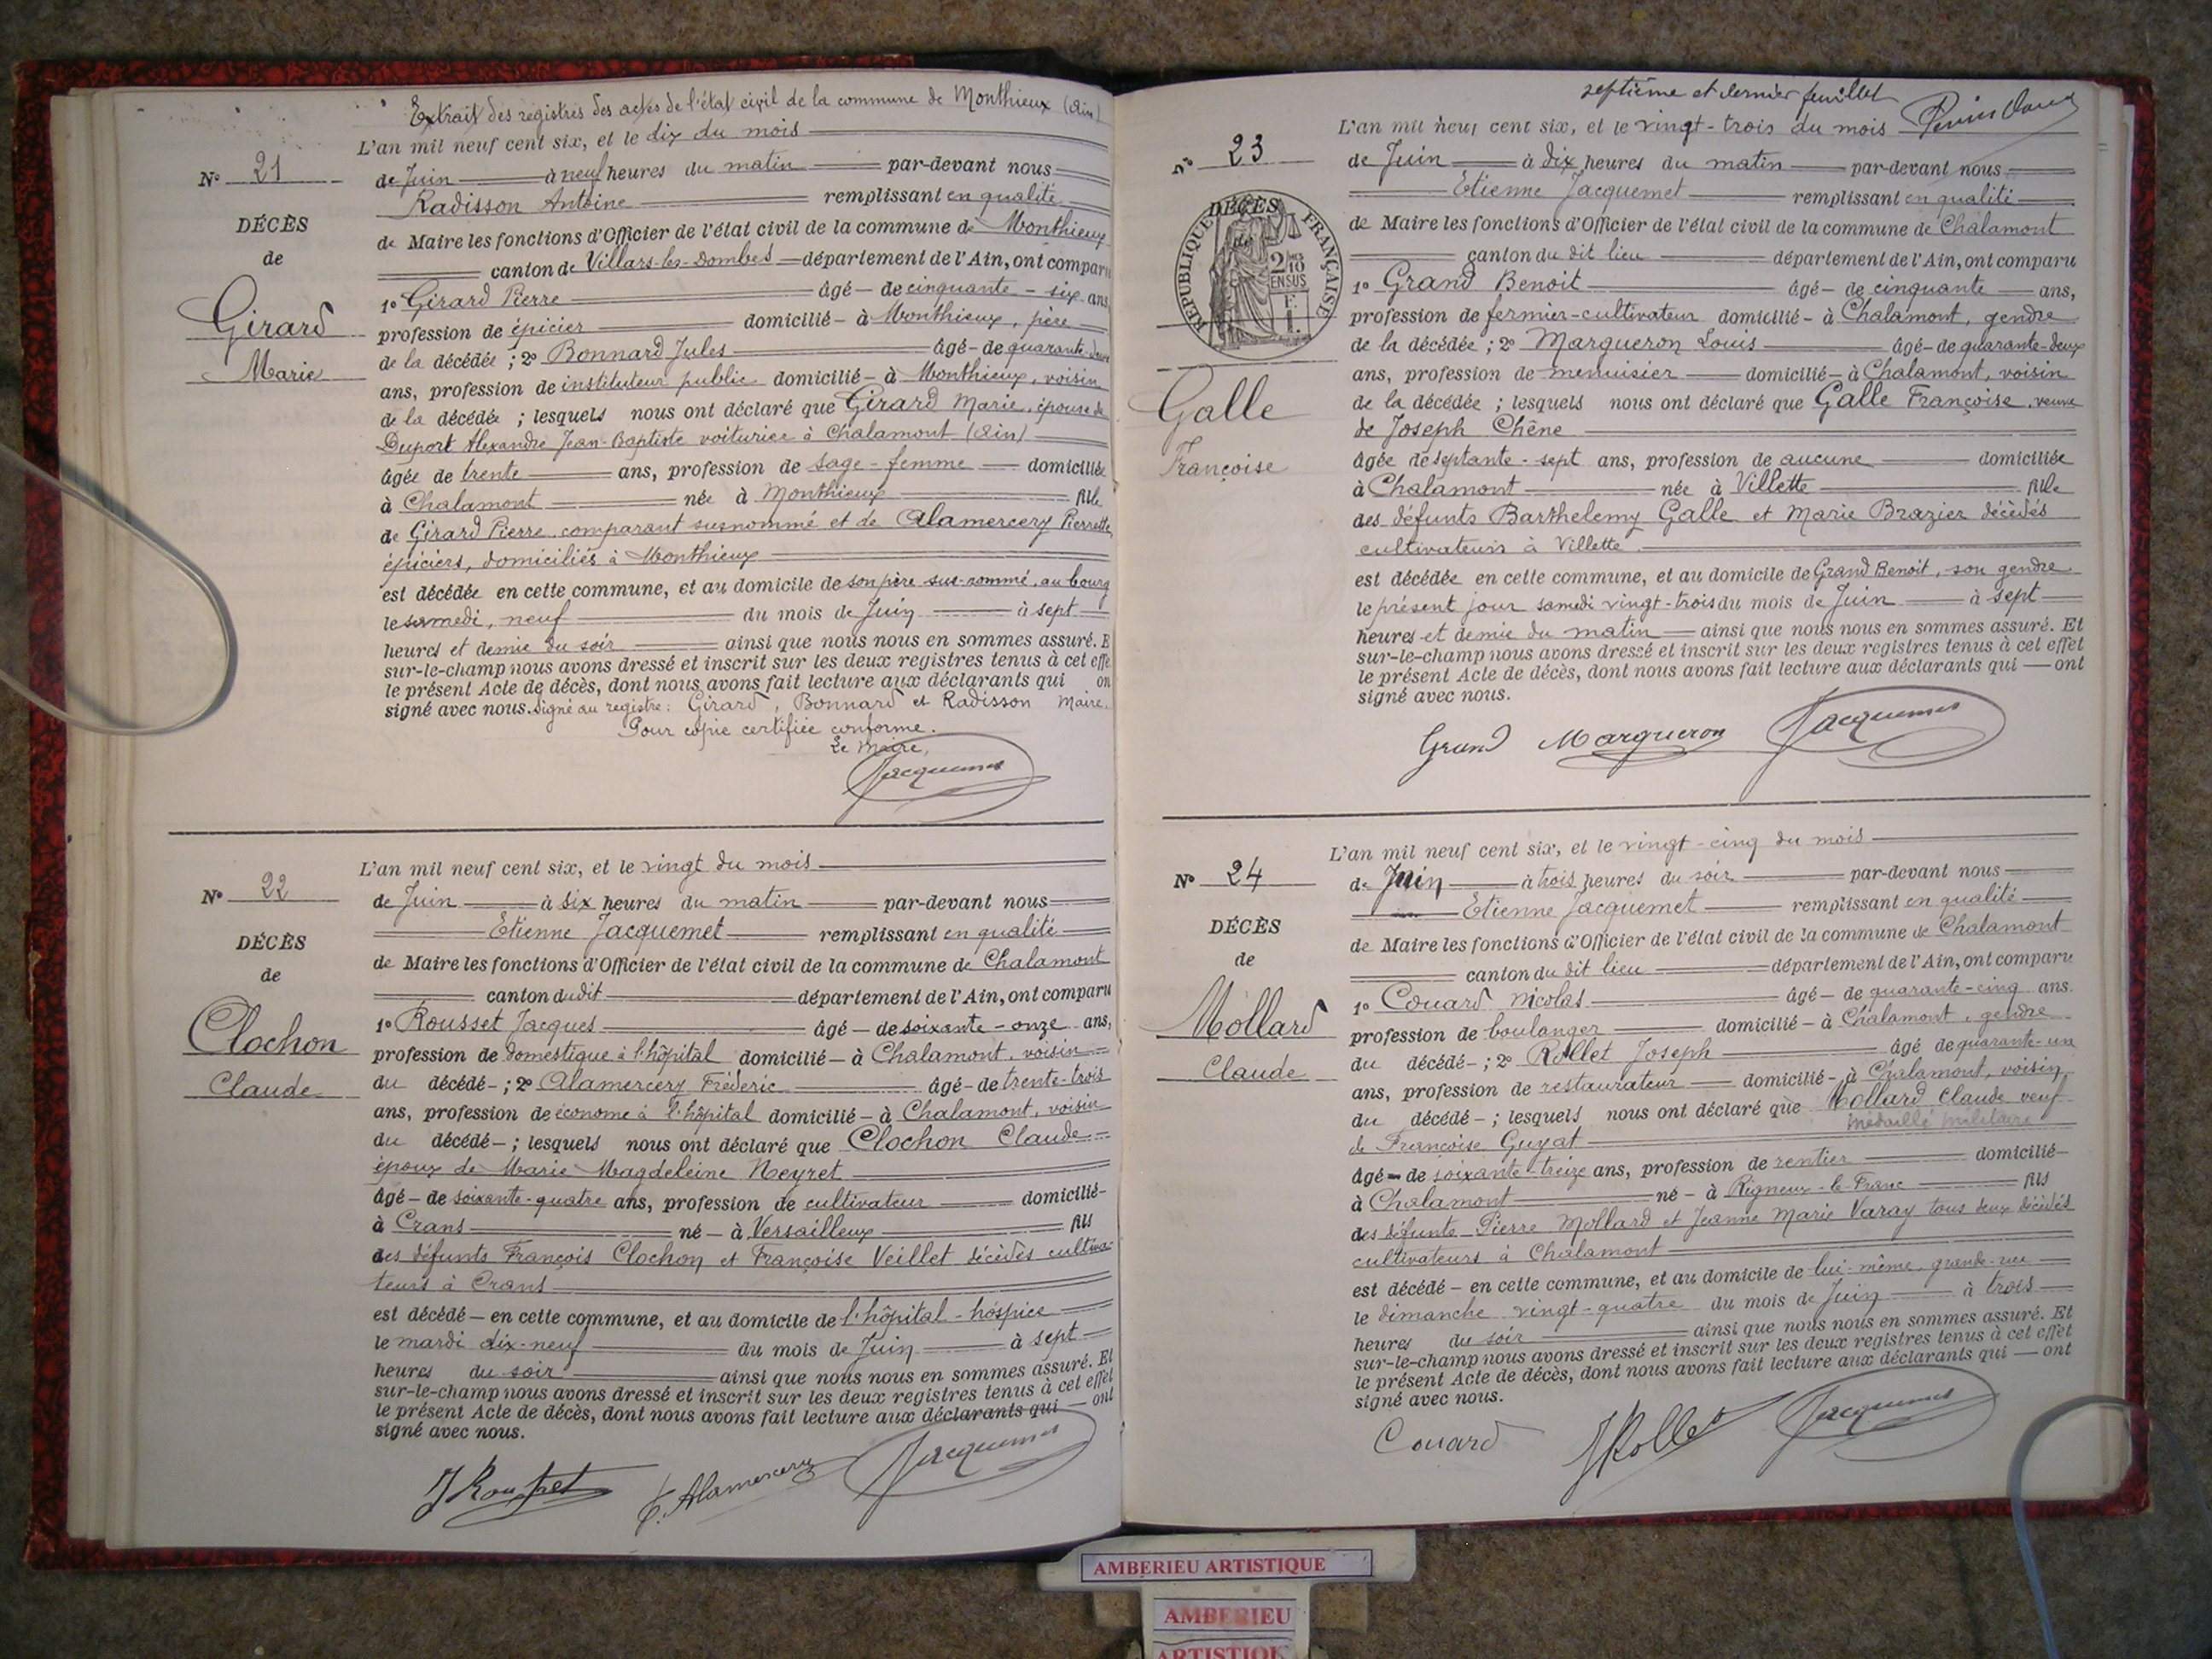 Extrait des registres des actes de l'état civil de la commune de Monthieux (Ain)
L'an mil neuf cent six, et le dix du mois
N° 21
de Juin à neuf heures du matin par-devant nous
Radisson Antoine remplissant en qualité
DÉCÈS
de Maire les fonctions d'Officier de l'état civil de la commune de Monthieux
de
canton de Villars-les-Dombes département de l'Ain, ont comparu
1° Girard Pierre âgé de cinquante-six ans,
Girard
profession de épicier domicilié à Monthieux, père
Marie
de la décédée ; 2° Bonnard Jules âgé de quarante-deux
ans, profession de instituteur public domicilié à Monthieux, voisin
de la décédée ; lesquels nous ont déclaré que Girard Marie, épouse de
Duport Alexandre Jean-Baptiste voiturier à Chalamont (Ain)
âgée de trente ans, profession de sage-femme domiciliée
à Chalamont née à Monthieux fille
de Girard Pierre, comparant susnommé et de Alamercery Pierrette,
épiciers, domiciliés à Monthieux
est décédée en cette commune, et au domicile de son père sus-nommé, au bourg
le samedi, neuf du mois de Juin à sept
heures et demie du soir ainsi que nous nous en sommes assuré. E
sur-le-champ nous avons dressé et inscrit sur les deux registres tenus à cet effe
le présent Acte de décès, dont nous avons fait lecture aux déclarants qui on
signé avec nous. Signé au registre : Girard, Bonnard et Radisson Maire.
Pour copie certifiée conforme.
Le Maire,
Jacquemet
L'an mil neuf cent six, et le vingt du mois
N° 22
de Juin à six heures du matin par-devant nous
Etienne Jacquemet remplissant en qualité
DÉCÈS
de Maire les fonctions d'Officier de l'état civil de la commune de Chalamont
de
canton dudit département de l'Ain, ont comparu
1° Rousset Jacques âgé de soixante-onze ans,
Clochon
profession de domestique à l'hôpital domicilié à Chalamont, voisin
Claude
du décédé ; 2° Alamercery Frédéric âgé de trente-trois
ans, profession de économe à l'hôpital domicilié à Chalamont, voisin
du décédé ; lesquels nous ont déclaré que Clochon Claude
époux de Marie Magdeleine Neyret
âgé de soixante-quatre ans, profession de cultivateur domicilié
à Crans né à Versailleux fils
des défunts François Clochon et Françoise Veillet décédés cultiva-
teurs à Crans
est décédé en cette commune, et au domicile de l'hôpital-hospice
le mardi dix-neuf du mois de Juin à sept
heures du soir ainsi que nous nous en sommes assuré. Et
sur-le-champ nous avons dressé et inscrit sur les deux registres tenus à cet effet
le présent Acte de décès, dont nous avons fait lecture aux déclarants qui ont
signé avec nous.
J Rousset F. Alamercery Jacquemet
septième et dernier feuillet
L'an mil neuf cent six, et le vingt-trois du mois
N° 23
de Juin à dix heures du matin par-devant nous
Etienne Jacquemet remplissant en qualité
DÉCÈS
de
RÉPUBLIQUE FRANÇAISE
2/10 EN SUS
F.
1.
de Maire les fonctions d'Officier de l'état civil de la commune de Chalamont
canton du dit lieu département de l'Ain, ont comparu
1° Grand Benoit âgé de cinquante ans,
profession de fermier-cultivateur domicilié à Chalamont, gendre
de la décédée ; 2° Margueron Louis âgé de quarante-deux
ans, profession de menuisier domicilié à Chalamont, voisin
Galle
de la décédée ; lesquels nous ont déclaré que Galle Françoise, veuve
de Joseph Chêne
Françoise
âgée de septante-sept ans, profession de aucune domiciliée
à Chalamont née à Villette fille
des défunts Barthelemy Galle et Marie Brazier décédés
cultivateurs à Villette
est décédée en cette commune, et au domicile de Grand Benoit, son gendre
le présent jour samedi vingt-trois du mois de Juin à sept
heures et demie du matin ainsi que nous nous en sommes assuré. Et
sur-le-champ nous avons dressé et inscrit sur les deux registres tenus à cet effet
le présent Acte de décès, dont nous avons fait lecture aux déclarants qui ont
signé avec nous.
Grand Margueron Jacquemet
L'an mil neuf cent six, et le vingt-cinq du mois
N° 24
de Juin à trois heures du soir par-devant nous
Etienne Jacquemet remplissant en qualité
DÉCÈS
de Maire les fonctions d'Officier de l'état civil de la commune de Chalamont
de
canton du dit lieu département de l'Ain, ont comparu
1° Couard Nicolas âgé de quarante-cinq ans.
Mollard
profession de boulanger domicilié à Chalamont, gendre
Claude
du décédé ; 2° Rollet Joseph âgé de quarante-un
ans, profession de restaurateur domicilié à Chalamont, voisin
du décédé ; lesquels nous ont déclaré que Mollard Claude veuf
médaillé militaire
de Françoise Guyat
âgé de soixante-treize ans, profession de rentier domicilié
à Chalamont né à Rigneux-le-Franc fils
des défunts Pierre Mollard et Jeanne Marie Varay tous deux décédés
cultivateurs à Chalamont
est décédé en cette commune, et au domicile de lui-même, grande-rue
le dimanche vingt-quatre du mois de Juin à trois
heures du soir ainsi que nous nous en sommes assuré. Et
sur-le-champ nous avons dressé et inscrit sur les deux registres tenus à cet effet
le présent Acte de décès, dont nous avons fait lecture aux déclarants qui ont
signé avec nous.
Couard J Rollet Jacquemet
AMBERIEU ARTISTIQUE
AMBERIEU
ARTISTIQUE